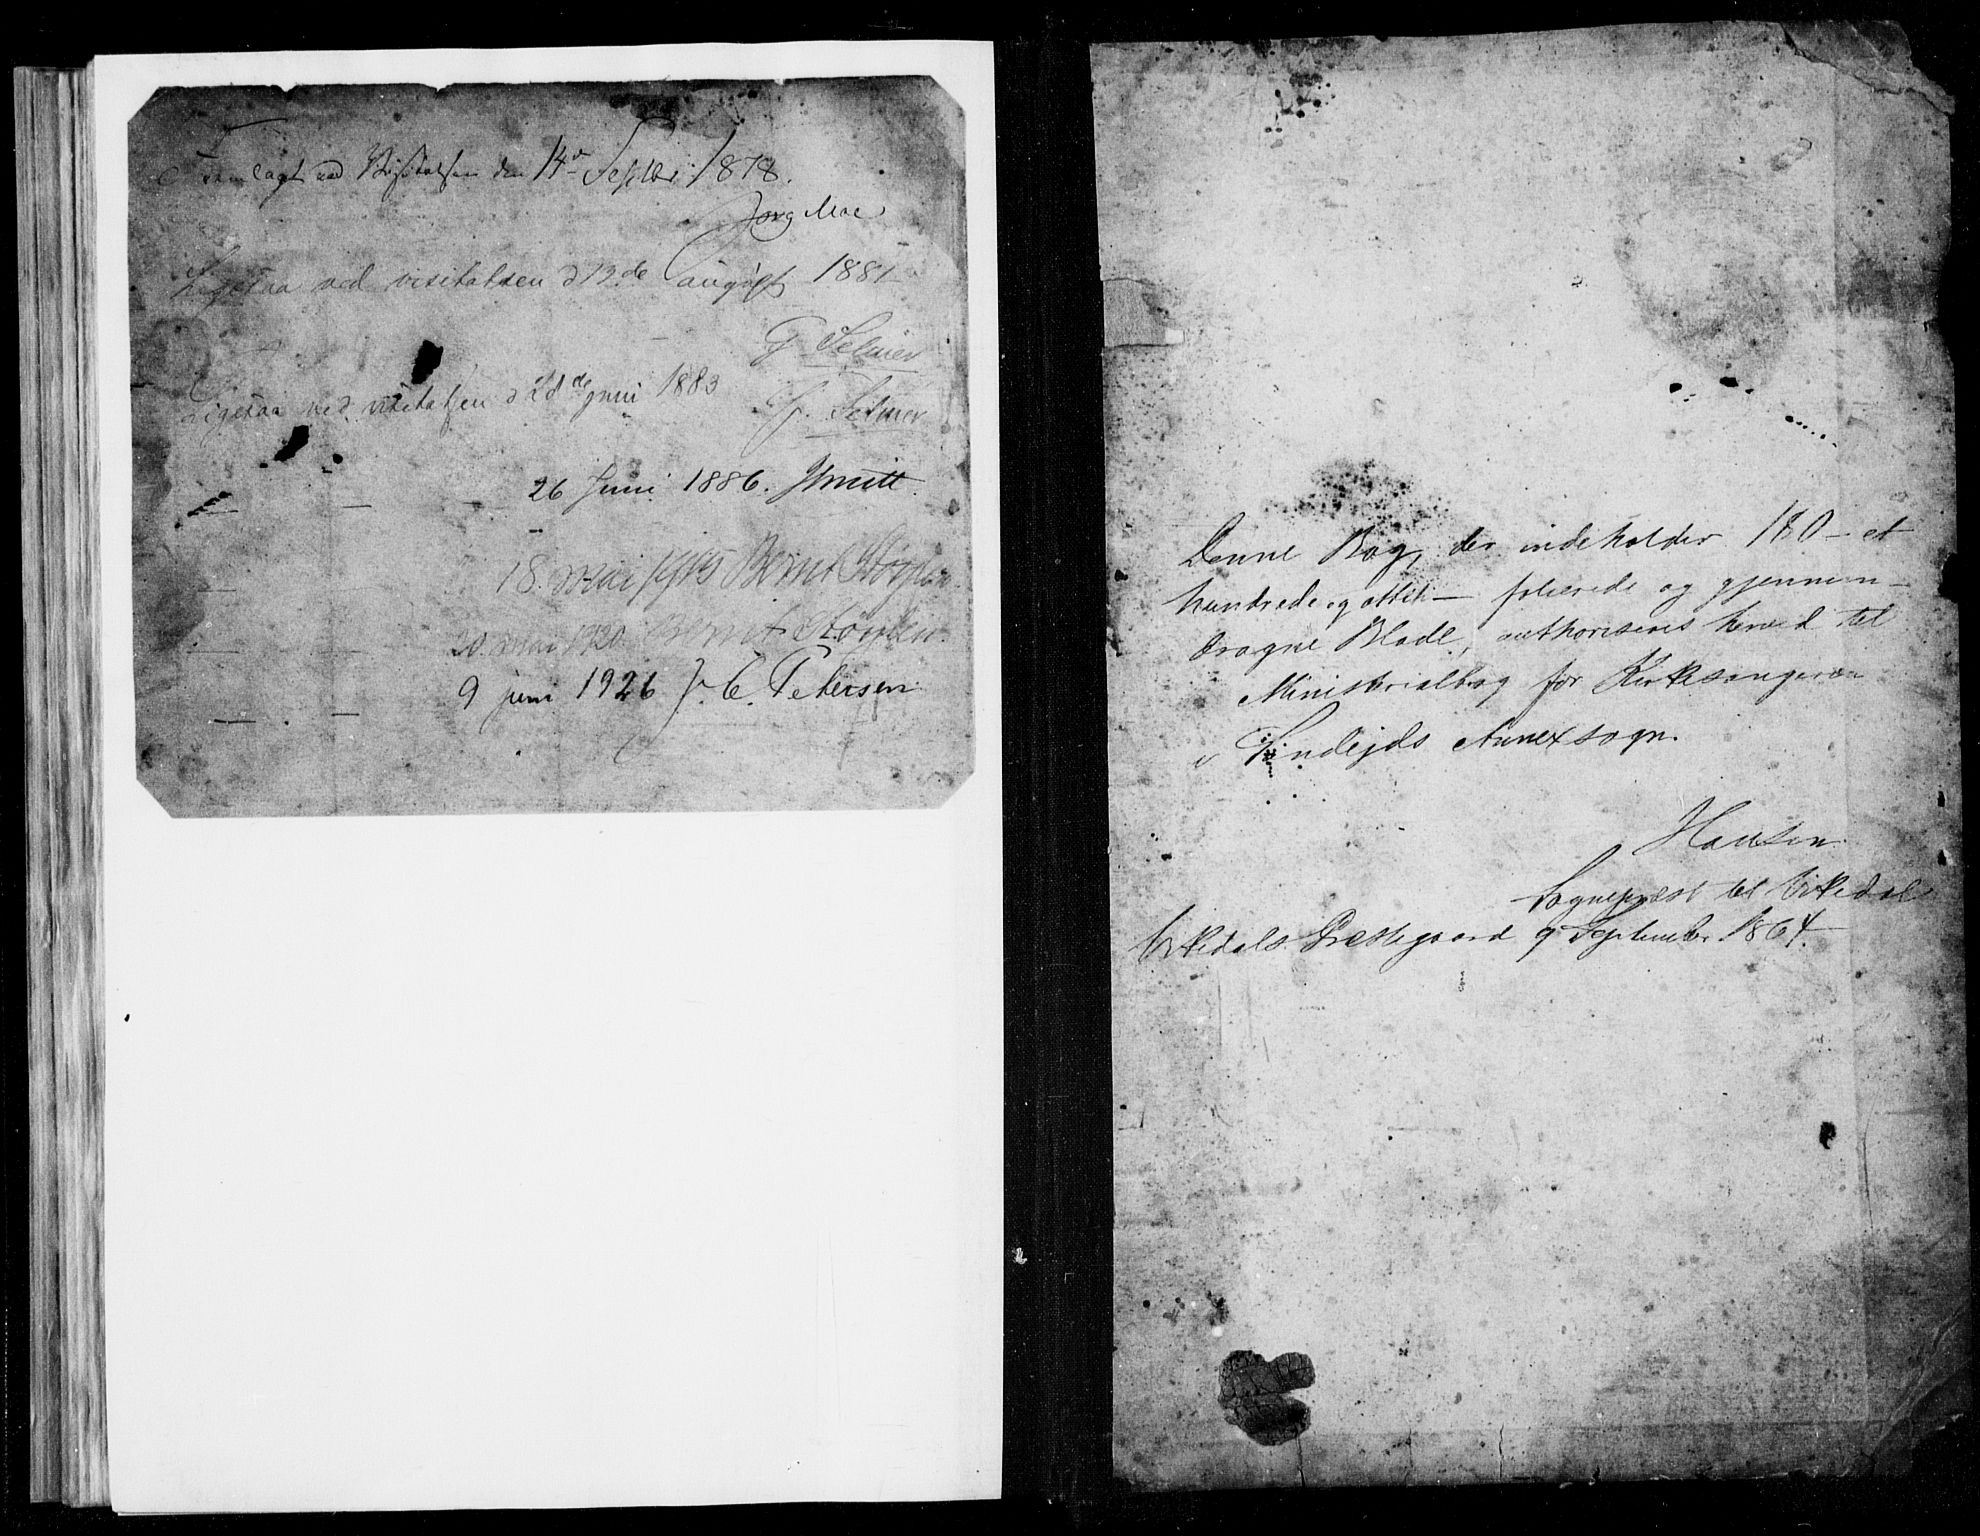 Fremlagt ved Visitatsen den 14de Septbr 1878.
Jørg Moe
Ligesaa ved visitatsen d 12de august 1881
J. Selmer
Ligesaa ved visitatsen d 28de juni 1883
J. Selmer
— — 26 Juni 1886. Smitt.
— — 18. mai 1915 Bernt Støylen.
— — 20. mai 1920. Bernt Støylen.
— — 9 juni 1926 J. C. Petersen
Denne Bog, der indeholder 180 – et
hundrede og otteti – folierede og gjennem-
dragne Blade, authoriseres herved til
Ministerialbog for Kirkesangeren
i Finslands Annexsogn.
Hansen
Sognepræst til
Præstegaard 9 September 1864.